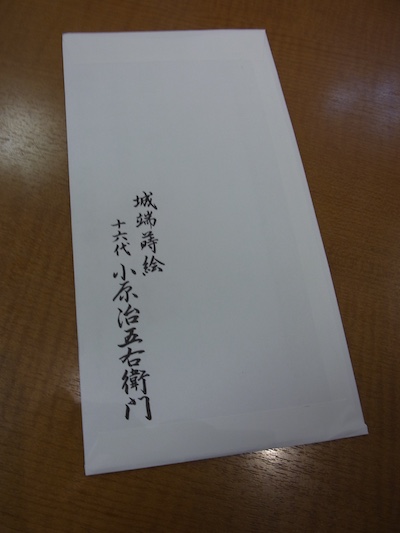 城端蒔絵
十六代 小原治五右衛門